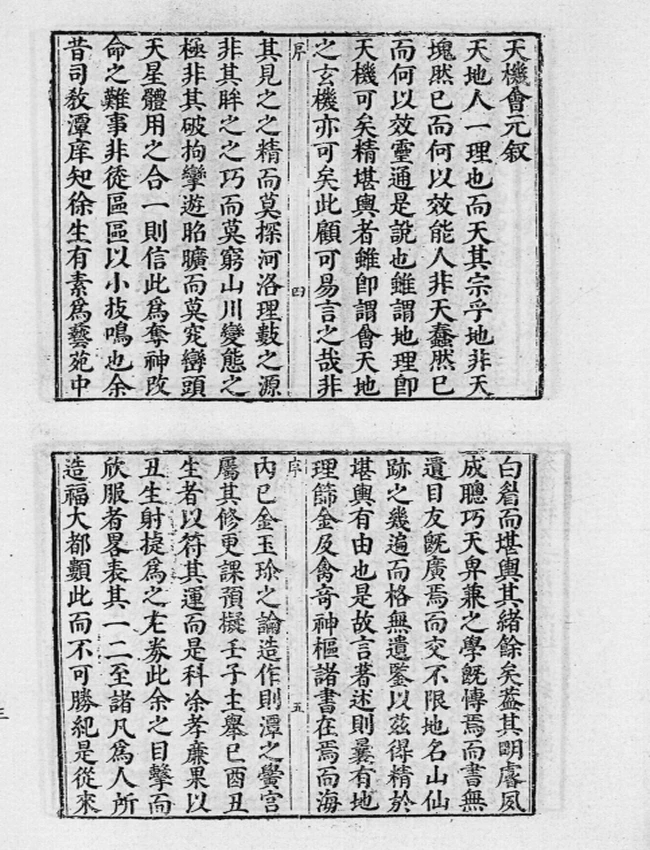 天機會元叙
天地人一理也而天其宗乎地非天
塊然已而何以效能人非天蠢然已
而何以效靈通是說也雖謂地理卽
天機可矣精堪輿者雖卽謂會天地
之玄機亦可矣此顧可易言之哉非
序 四
其見之之精而莫探河洛理藪之源
非其眸之之巧而莫窮山川變態之
極非其破拘攣遊昭曠而莫究巒頭
天星體用之合一則信此爲奪神改
命之難事非徒區區以小技鳴也余
昔司敎潭庠知徐生有素爲藝苑中
白眉而堪輿其緒餘矣葢其明睿夙
成聰巧天畁兼之學旣慱焉而書無
遺目友旣廣焉而交不限地名山仙
跡之幾遍而格無遺鑒以玆得精於
堪輿有由也是故言著述則曩有地
理篩金及禽奇神樞諸書在焉而海
序 五
內已金玉珍之論造作則潭之黌宮
屬其修更課預擬壬子主舉巳酉丑
生者以符其運而是科凃孝廉果以
丑生射捷爲之左劵此余之目擊而
欣服者畧表其一二至諸凡爲人所
造福大都類此而不可勝紀是從來
三